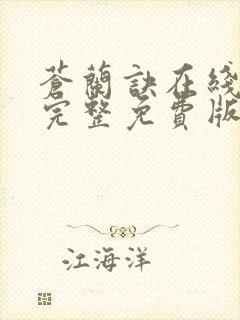 蒼蘭訣在綫
完整免費版
江海洋